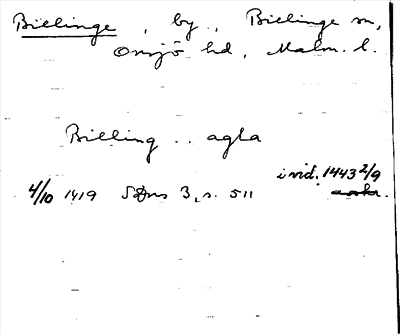 Billinge, by, Billinge sn,
Onsjö hd, Malm. l.
Billing .. agla
i vid. 1443 2/9
4/10 1419 SDns 3, s. 511